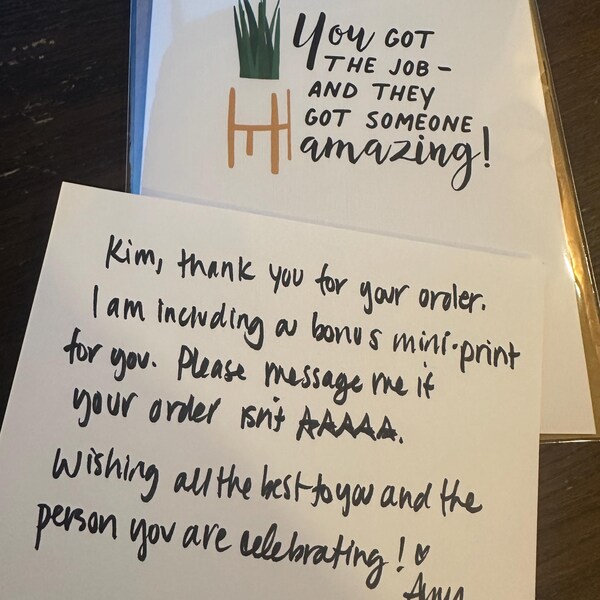 You GOT
THE JOB –
AND THEY
GOT SOMEONE
amazing!
Kim, thank you for your order.
I am including a bonus mini-print
for you. Please message me if
your order isn't ★★★★★.
Wishing all the best to you and the
person you are celebrating! ♡